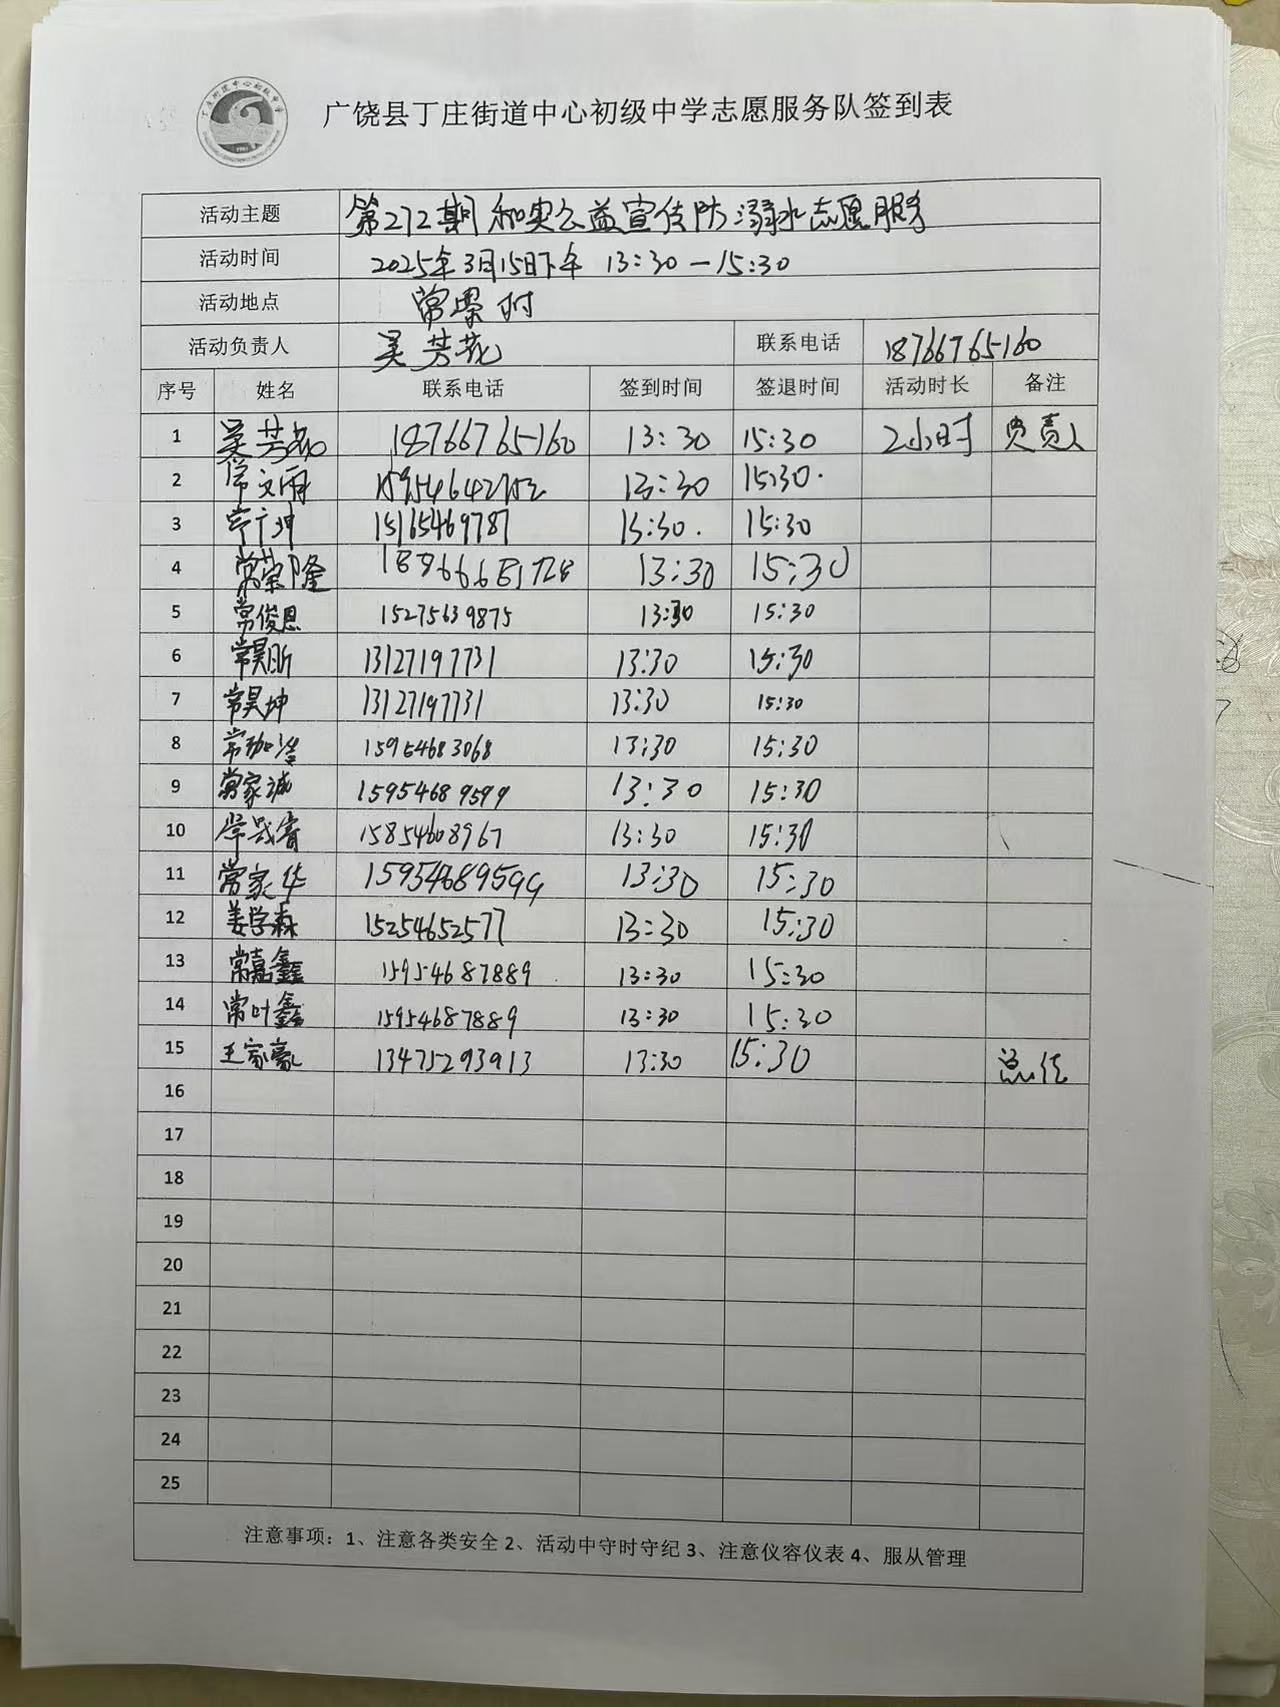 广饶县丁庄街道中心初级中学志愿服务队签到表
活动主题 第272期和奥公益宣传防溺水志愿服务
活动时间 2025年3月15日下午 13:30-15:30
活动地点 常 村
活动负责人 吴芳花 联系电话 18766765160
序号 姓名 联系电话 签到时间 签退时间 活动时长 备注
1 吴芳花 18766765160 13:30 15:30 2小时 负责人
2 常文雨 13:30 15:30.
3 15165469787 13:30. 15:30
4 常荣隆 13:30 15:30
5 常俊恩 15275639875 13:30 15:30
6 常昊昕 13127197731 13:30 15:30
7 常昊坤 13127197731 13:30 15:30
8 15954683068 13:30 15:30
9 常家诚 15954689599 13:30 15:30
10 15854608967 13:30 15:30
11 常家华 15954689599 13:30 15:30
12 姜学森 15254652577 13:30 15:30
13 常嘉鑫 15954687889 13:30 15:30
14 常叶鑫 15954687889 13:30 15:30
15 王家豪 13475293913 13:30 15:30
16
17
18
19
20
21
22
23
24
25
注意事项：1、注意各类安全 2、活动中守时守纪 3、注意仪容仪表 4、服从管理